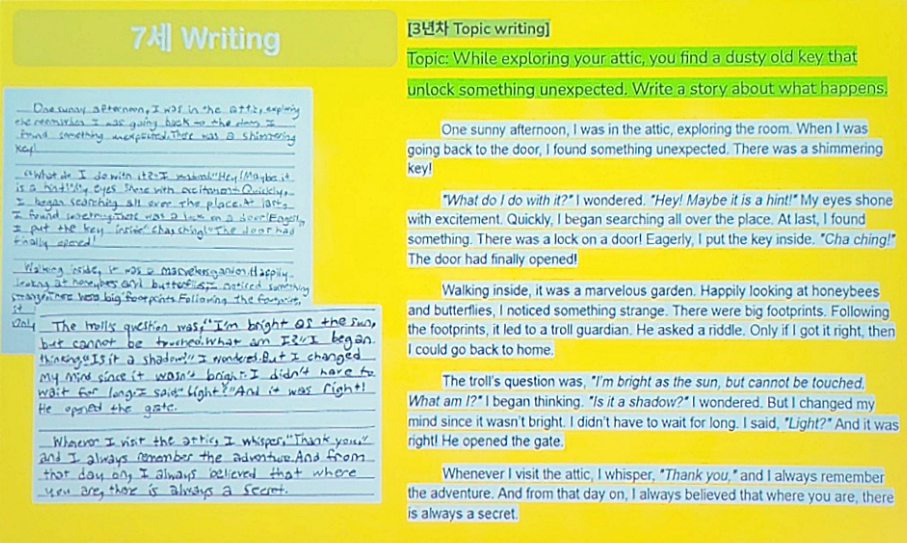 7세 Writing
One sunny afternoon, I was in the attic, exploring
the room. When I was going back to the door, I
found something unexpected. There was a shimmering
key!
"What do I do with it?" I wondered. "Hey! Maybe it
is a hint!" My eyes shone with excitement. Quickly,
I began searching all over the place. At last,
I found something. There was a lock on a door! Eagerly,
I put the key inside. "Cha ching!" The door had
finally opened!
Walking inside, it was a marvelous garden. Happily
looking at honeybees and butterflies, I noticed something
strange. There were big footprints. Following the footprints,
it
Only
The troll's question was, "I'm bright as the sun,
but cannot be touched. What am I?" I began
thinking. "Is it a shadow?" I wondered. But I changed
my mind since it wasn't bright. I didn't have to
wait for long. I said, "Light?" And it was right!
He opened the gate.
Whenever I visit the attic, I whisper, "Thank you,"
and I always remember the adventure. And from
that day on, I always believed that where
you are, there is always a secret.
[3년차 Topic writing]
Topic: While exploring your attic, you find a dusty old key that
unlock something unexpected. Write a story about what happens.
One sunny afternoon, I was in the attic, exploring the room. When I was
going back to the door, I found something unexpected. There was a shimmering
key!
"What do I do with it?" I wondered. "Hey! Maybe it is a hint!" My eyes shone
with excitement. Quickly, I began searching all over the place. At last, I found
something. There was a lock on a door! Eagerly, I put the key inside. "Cha ching!"
The door had finally opened!
Walking inside, it was a marvelous garden. Happily looking at honeybees
and butterflies, I noticed something strange. There were big footprints. Following
the footprints, it led to a troll guardian. He asked a riddle. Only if I got it right, then
I could go back to home.
The troll's question was, "I'm bright as the sun, but cannot be touched.
What am I?" I began thinking. "Is it a shadow?" I wondered. But I changed my
mind since it wasn't bright. I didn't have to wait for long. I said, "Light?" And it was
right! He opened the gate.
Whenever I visit the attic, I whisper, "Thank you," and I always remember
the adventure. And from that day on, I always believed that where you are, there
is always a secret.